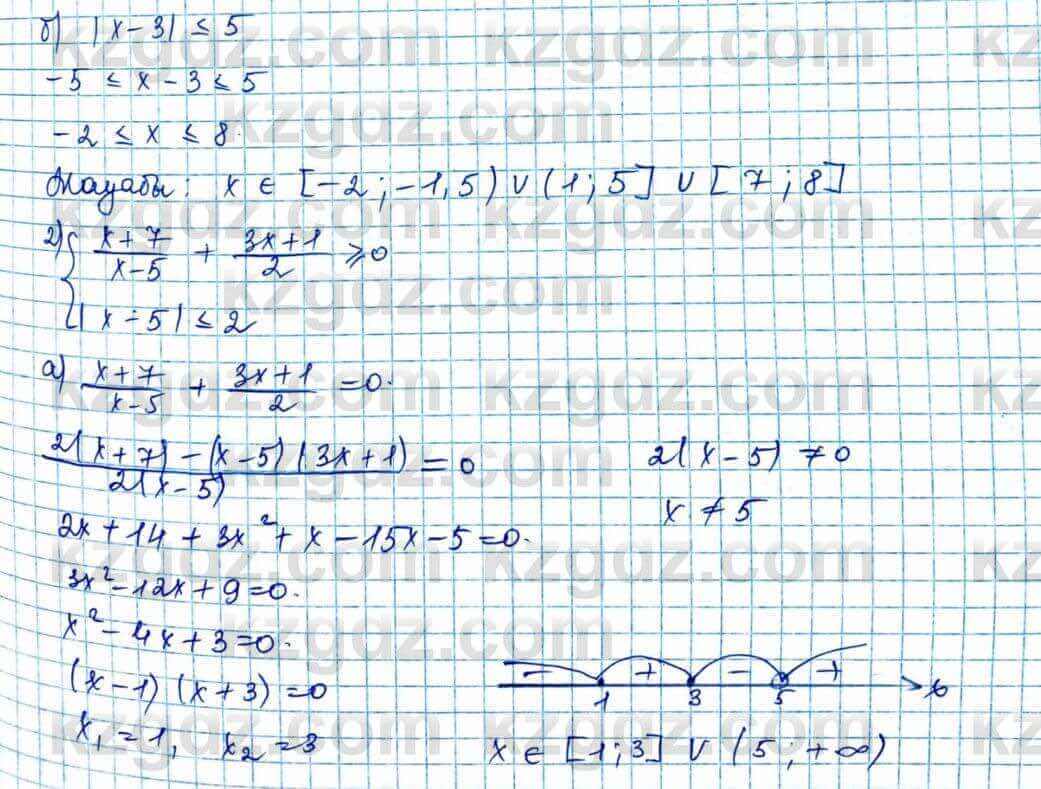 б) |x-3| ≤ 5
-5 ≤ x-3 ≤ 5
-2 ≤ x ≤ 8.
Жауабы: x ∈ [-2; -1,5) ∪ (1; 5] ∪ [7; 8]
2) { (x+7)/(x-5) + (3x+1)/2 ≥ 0
|x-5| ≤ 2
а) (x+7)/(x-5) + (3x+1)/2 = 0.
(2(x+7) - (x-5)(3x+1))/(2(x-5)) = 0
2(x-5) ≠ 0
x ≠ 5
2x + 14 + 3x² + x - 15x - 5 = 0.
3x² - 12x + 9 = 0.
x² - 4x + 3 = 0.
(x-1)(x+3) = 0
x₁ = 1, x₂ = 3
- + - +
1 3 5 x
x ∈ [1; 3] ∪ (5; +∞)
kzgdz.com